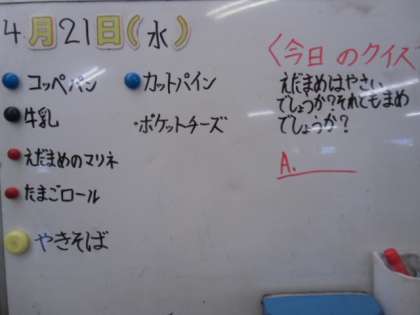 4月21日(水)
コッペパン
カットパイン
牛乳
・ポケットチーズ
えだまめのマリネ
たまごロール
やきそば
〈今日のクイズ
えだまめはやさい
でしょうか?それともまめ
でしょうか?
A.